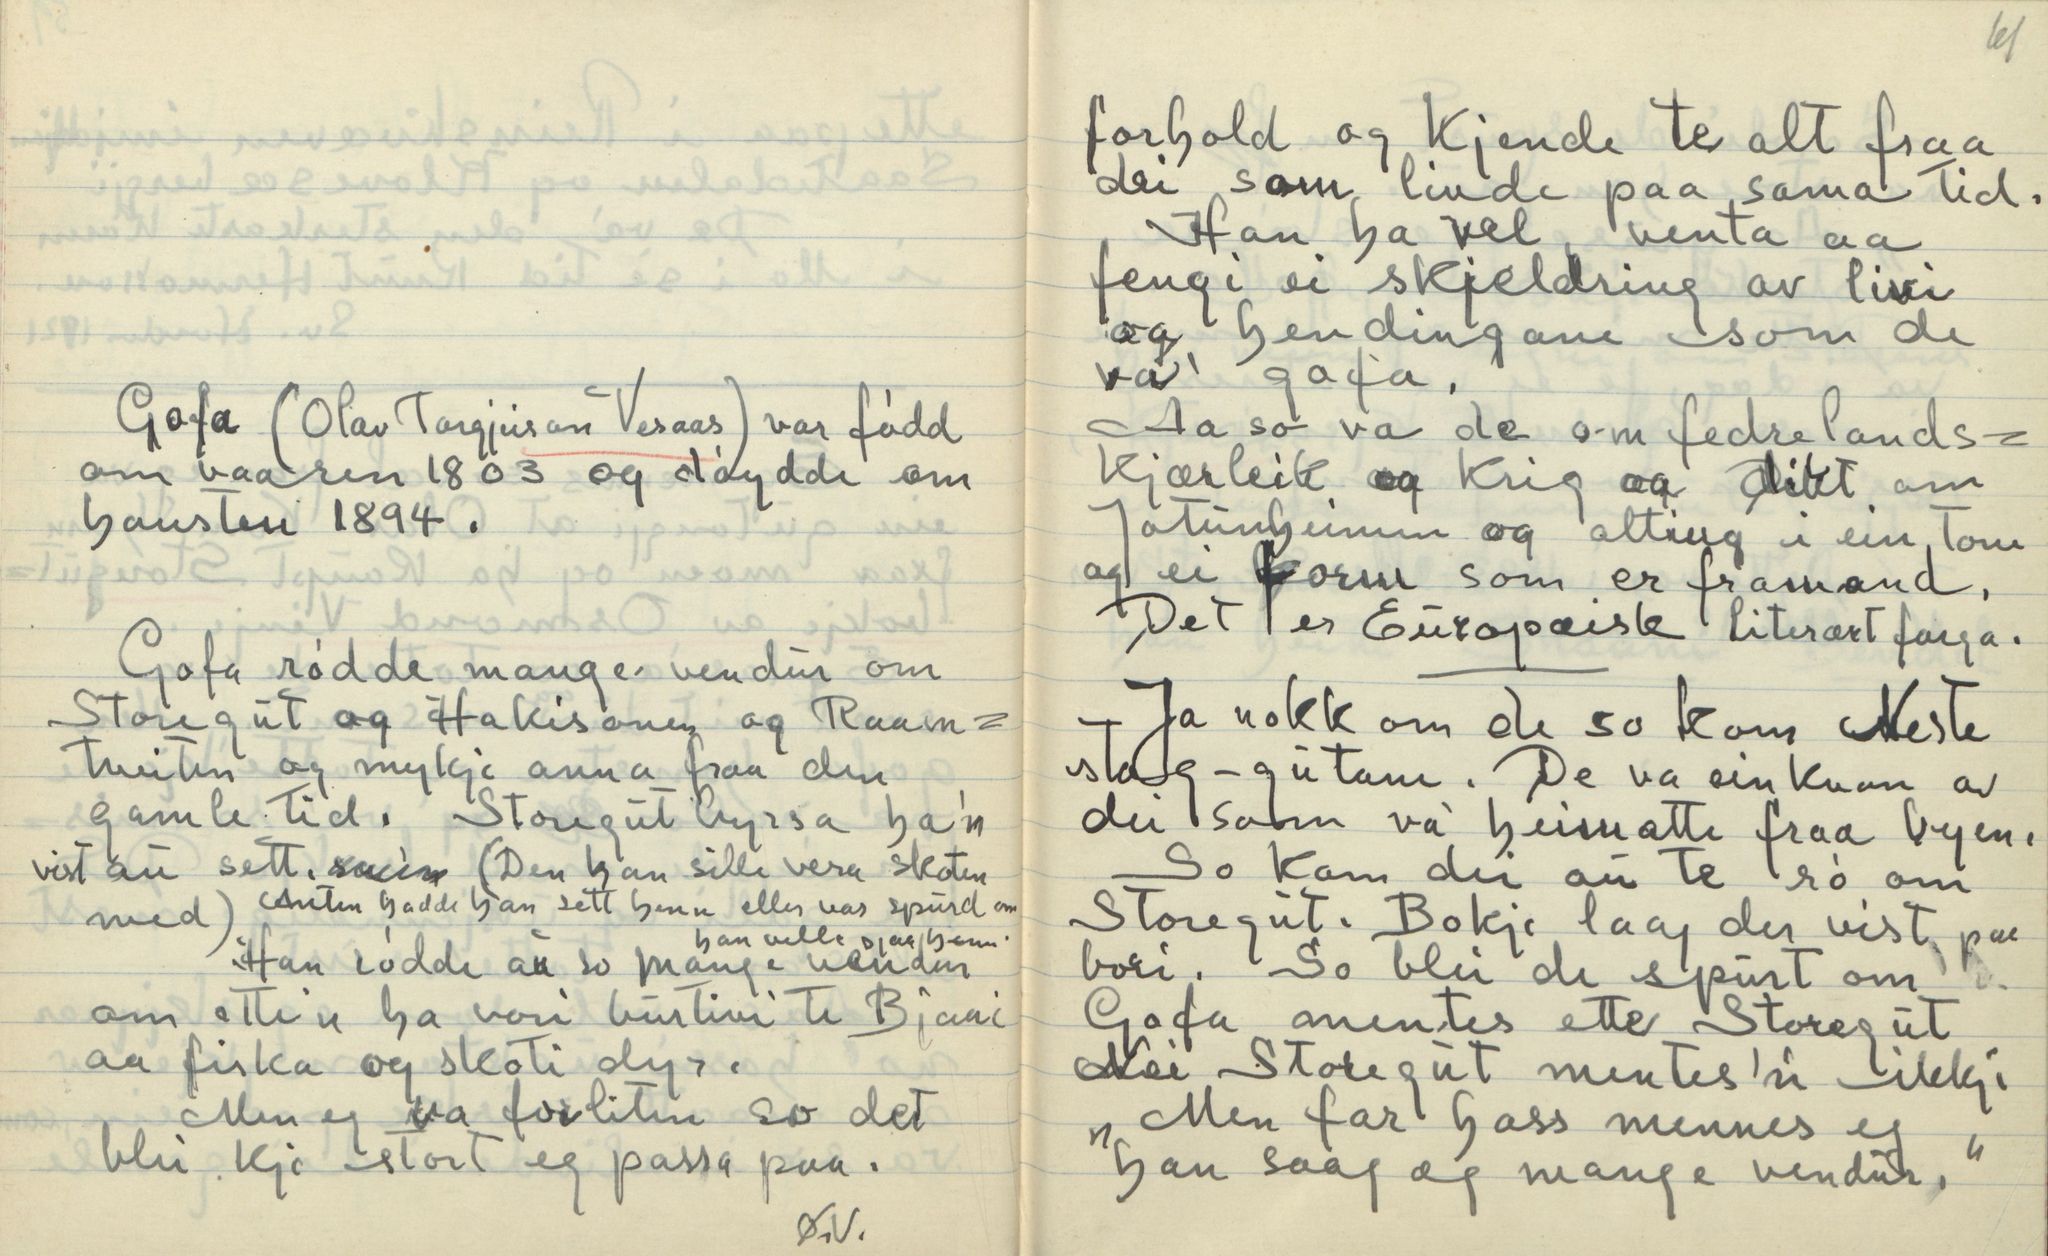 Gofa (Olav Targjusson Vesaas) var fødd
om vaaren 1803 og døydde om
hausten 1894.
Gofa rødde mange vendur om
Storegut og Hakisonen og Raam=
tveiten og mykje anna fraa den
gamle tid. Storegut byrsa ha'n
vist au sett. (Den han sille vera skoten
med) Anten hadde han sett henn eller var spurd om
han ville sjaa henn.
Han rødde au so mange vendur
om ette'n ha vori burtivi te Bjaai
aa fiska og skoti dyr.
Men eg va forliten so det
blei kje stort eg passa paa.
Ø.V.
61
forhold og kjende te alt fraa
dei som livde paa sama tid.
Han ha vel venta aa
fengi ei skjeldring av livi
og hendingane som de
va' gofa.
Aa so va de om fedrelands=
kjærleik og krig og dikt om
Jotunheimen og alting i ein tone
og ei form som er framand.
Det er Europæisk literært farga.
– Ja nokk om de so kom Neste
stog-gutane. De va einkvan av
dei som va' heimatte fraa byen.
So kom dei au te rø om
Storegut. Bokje laag der vist paa
bori. So blei de spurt om
Gofa mentes ette Storegut
Nei Storegut mentes'n ikkji
"Men far hass mennes eg
han saag eg mange vendur."